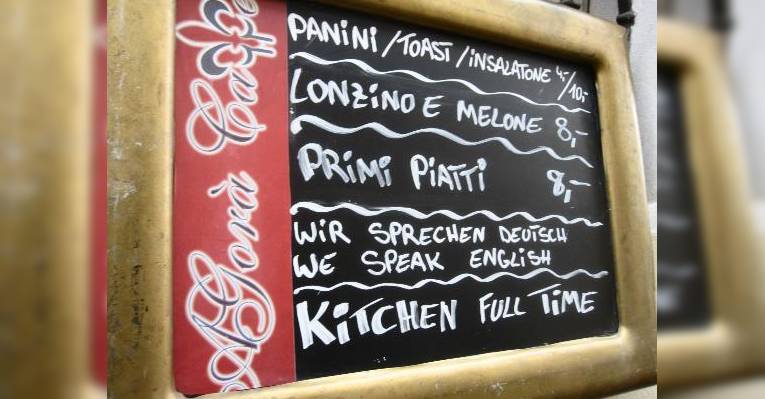 Agorà Caffè
PANINI/TOAST/INSALATONE 4,-/10,-
LONZINO E MELONE 8,-
PRIMI PIATTI 8,-
WIR SPRECHEN DEUTSCH
WE SPEAK ENGLISH
KITCHEN FULL TIME